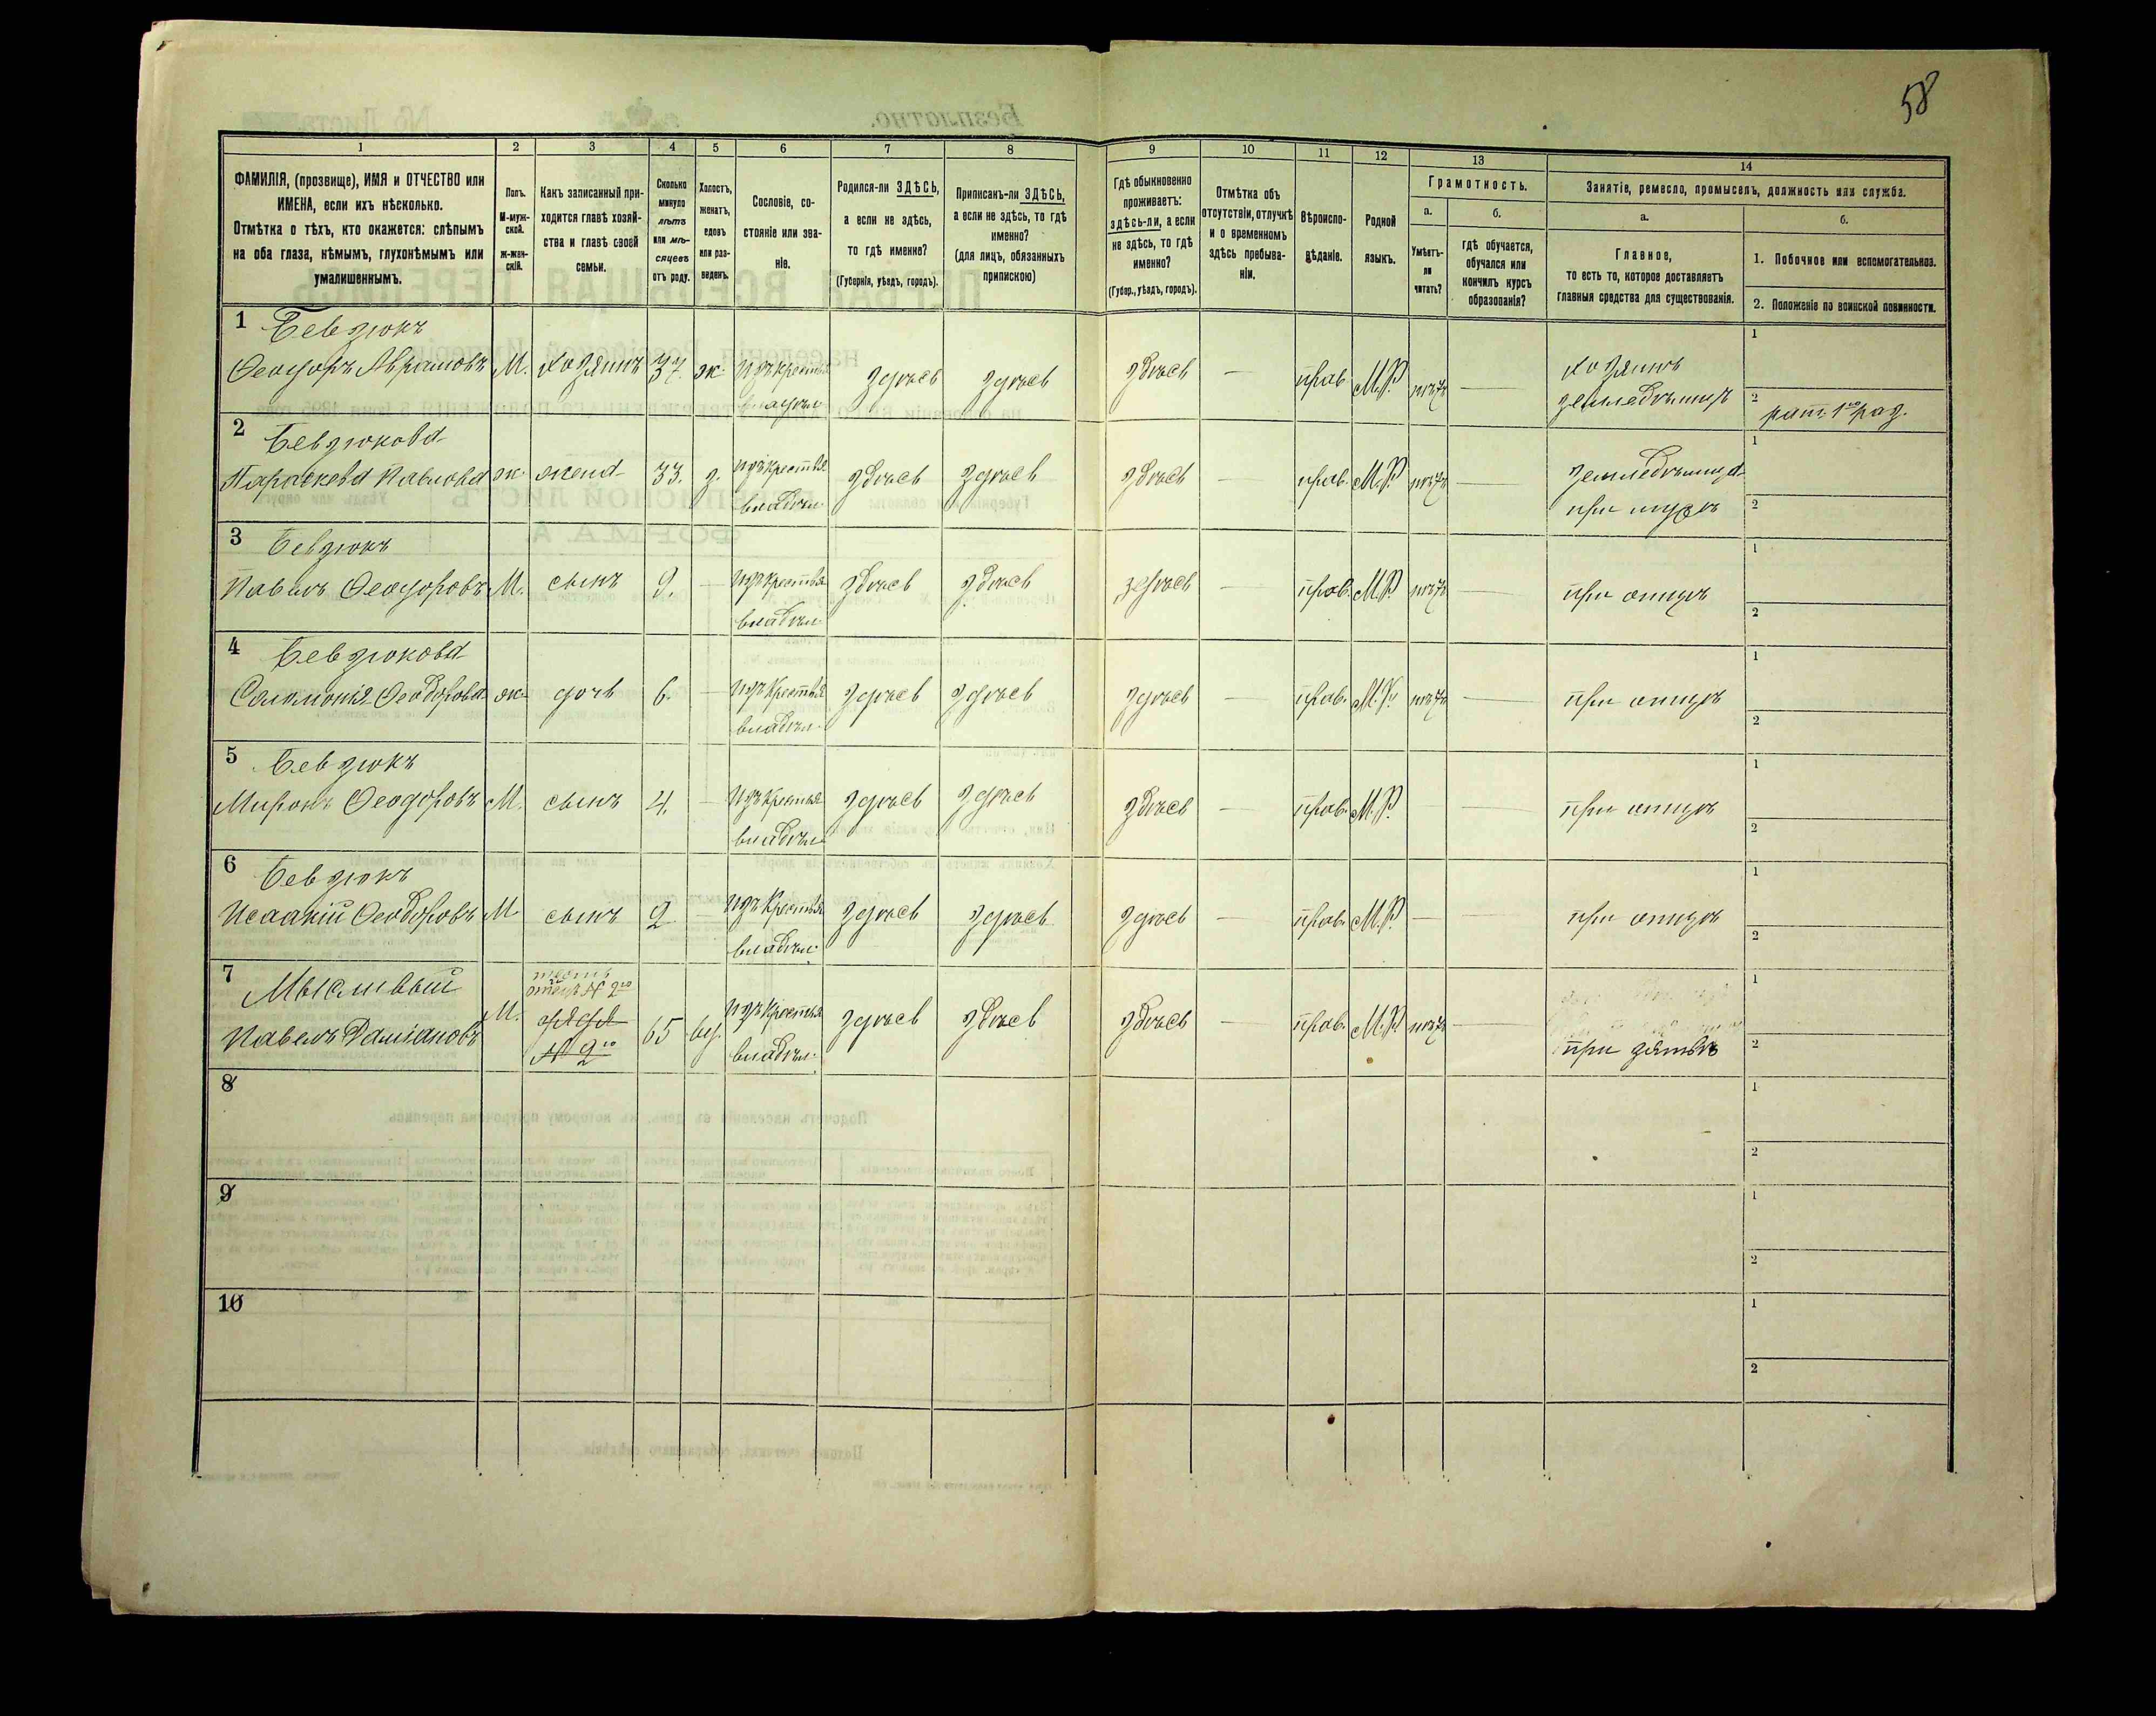 58
1 2 3 4 5 6 7 8 9 10 11 12 13 14
ФАМИЛІЯ, (прозвище), ИМЯ и ОТЧЕСТВО или
ИМЕНА, если ихъ нѣсколько.
Отмѣтка о тѣхъ, кто окажется: слѣпымъ
на оба глаза, нѣмымъ, глухонѣмымъ или
умалишеннымъ.
Полъ.
М-муж-
ской.
Ж-жен-
скій.
Какъ записанный при-
ходится главѣ хозяй-
ства и главѣ своей
семьи.
Сколько
минуло
лѣтъ
или мѣ-
сяцевъ
отъ роду.
Холостъ,
женатъ,
вдовъ
или раз-
веденъ.
Сословіе, со-
стояніе или зва-
ніе.
Родился-ли ЗДѢСЬ,
а если не здѣсь,
то гдѣ именно?
(Губернія, уѣздъ, городъ).
Приписанъ-ли ЗДѢСЬ,
а если не здѣсь, то гдѣ
именно?
(для лицъ, обязанныхъ
припискою)
Гдѣ обыкновенно
проживаетъ:
здѣсь-ли, а если
не здѣсь, то гдѣ
именно?
(Губер., уѣздъ, городъ).
Отмѣтка объ
отсутствіи, отлучкѣ
и о временномъ
здѣсь пребыва-
ніи.
Вѣроиспо-
вѣданіе.
Родной
языкъ.
Грамотность.
а.
Умѣетъ-
ли
читать?
б.
гдѣ обучается,
обучался или
кончилъ курсъ
образованія?
Занятіе, ремесло, промыселъ, должность или служба.
а.
Главное,
то есть то, которое доставляетъ
главныя средства для существованія.
б.
1. Побочное или вспомогательное.
2. Положеніе по воинской повинности.
1 Бевзюкъ
Ѳеодоръ Аврамовъ М. хозяинъ 37. ж. Изъ крестья владѣл. здѣсь здѣсь здѣсь — прав. М.Р. нѣтъ — хозяинъ земледѣлецъ 1 2 рат. 1го раз.
2 Бевзюкова
Параскева Павлова ж. жена 33. з. изъ крестья владѣл. здѣсь здѣсь здѣсь — прав. М.Р. нѣтъ — земледѣлица при мужѣ 1 2
3 Бевзюкъ
Павелъ Ѳеодоровъ М. сынъ 9. — изъ крестья владѣл. здѣсь здѣсь здѣсь — прав. М.Р. нѣтъ — при отцѣ 1 2
4 Бевзюкова
Соломонія Ѳеодорова ж. дочь 6. — изъ крестья владѣл. здѣсь здѣсь здѣсь — прав. М.Р. нѣтъ — при отцѣ 1 2
5 Бевзюкъ
Миронъ Ѳеодоровъ М. сынъ 4. — изъ крестья владѣл. здѣсь здѣсь здѣсь — прав. М.Р. — при отцѣ 1 2
6 Бевзюкъ
Исаакій Ѳеодоровъ М. сынъ 2 — изъ крестья владѣл. здѣсь здѣсь здѣсь — прав. М.Р. — — при отцѣ 1 2
7 Мысливый
Павелъ Даміановъ М. тесть отецъ № 2го дядя № 2го 65 вд. изъ крестья владѣл. здѣсь здѣсь здѣсь — прав. М.Р. нѣтъ — при зятьѣ 1 2
8 1 2
9 1 2
10 1 2